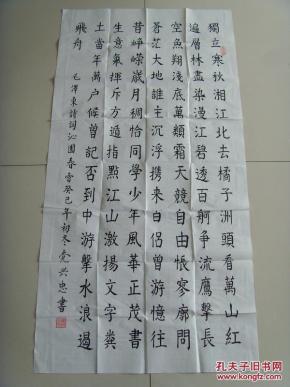 獨立寒秋湘江北去橘子洲頭看萬山紅
遍層林盡染漫江碧透百舸争流鷹擊長
空魚翔淺底萬類霜天競自由悵寥廓問
蒼茫大地誰主沉浮携来百侣曾游憶往
昔崢嶸歲月稠恰同學少年風華正茂書
生意氣揮斥方遒指點江山激揚文字糞
土當年萬户候曾記否到中游擊水浪遏
飛舟
毛澤東詩詞沁園春雪癸巳年初冬党兴忠書
孔夫子旧书网